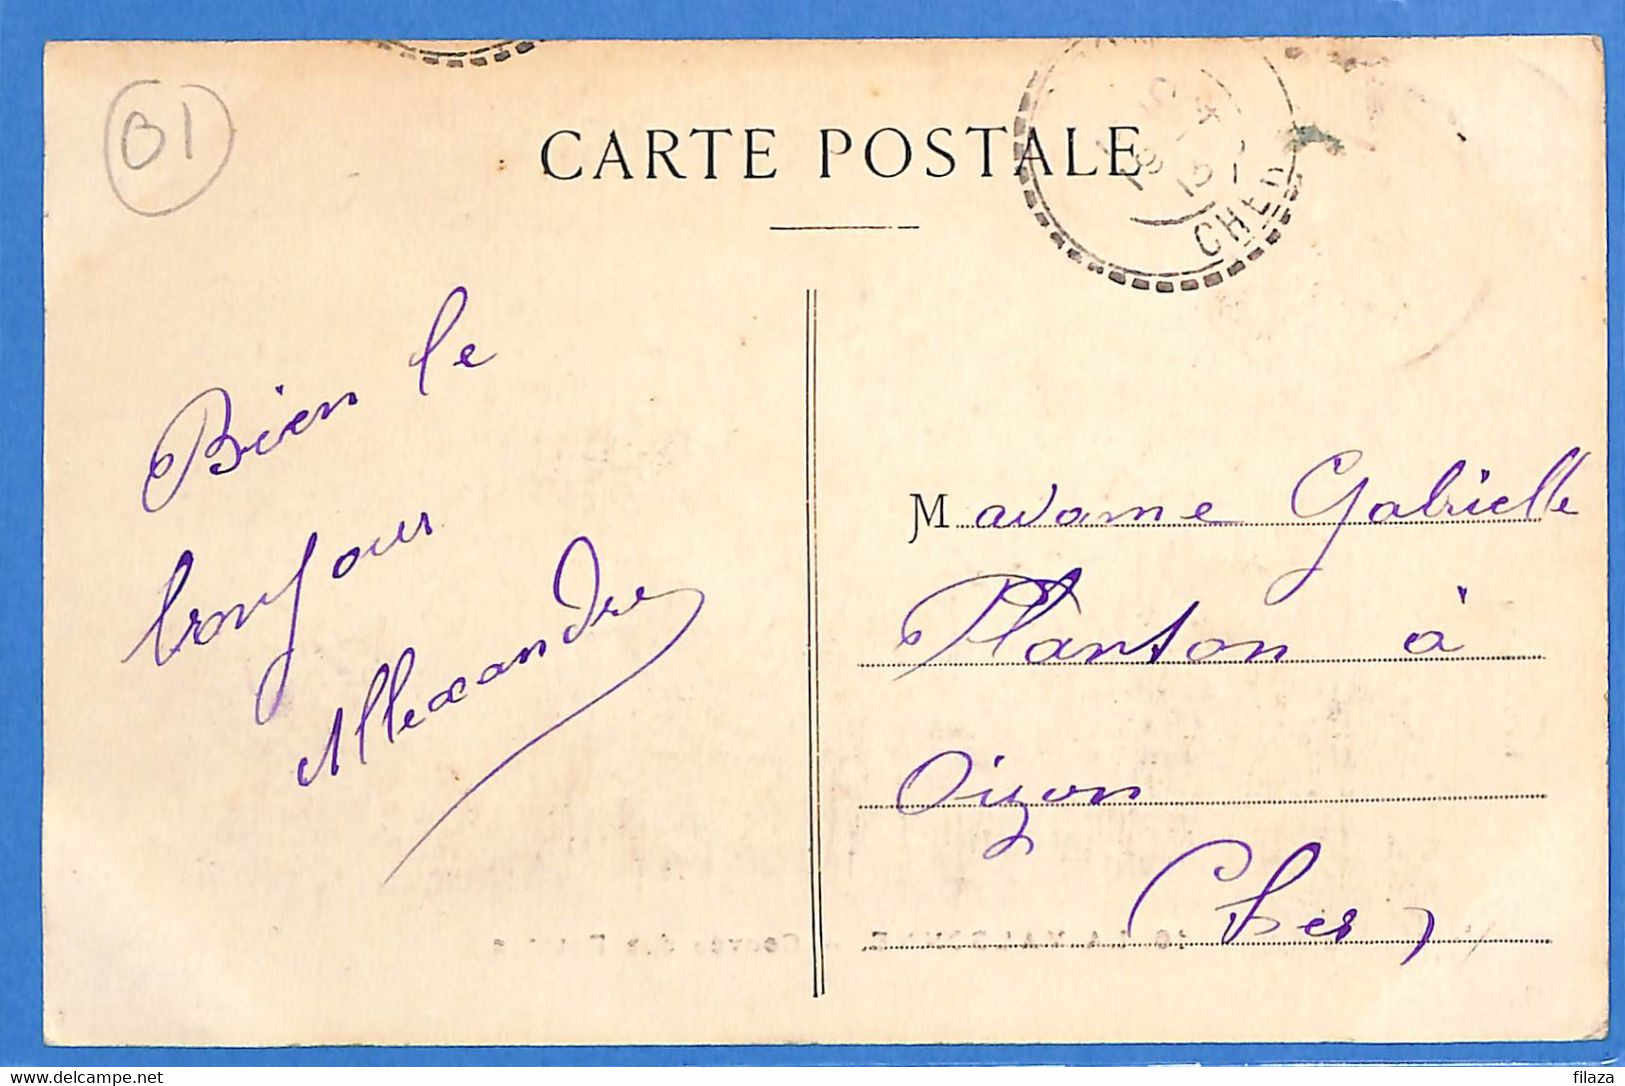 01
CARTE POSTALE
18 4
13
CHER
Bien le
bonjour
Allexandre
Madame Gabrielle
Planton à
Oizon
Cher
filaza
www.delcampe.net